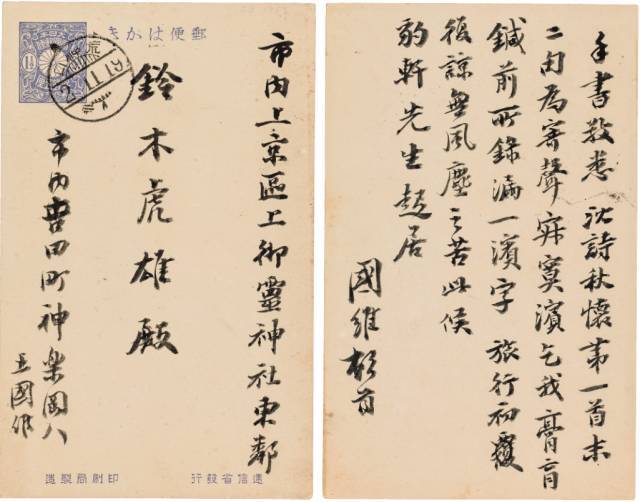 郵便はかき
1½
市内上京區上御靈神社東鄰
鈴木虎雄殿
市内吉田町神楽岡八
王國維
逓信省發行
印刷局製造
手書敬悉 沈詩秋懷第一首末
二句為寄聲寂寞濱乞我膏肓
鍼前所錄漏一濱字 旅行初覆
後諒無風塵之苦此候
豹軒先生起居
國維頓首